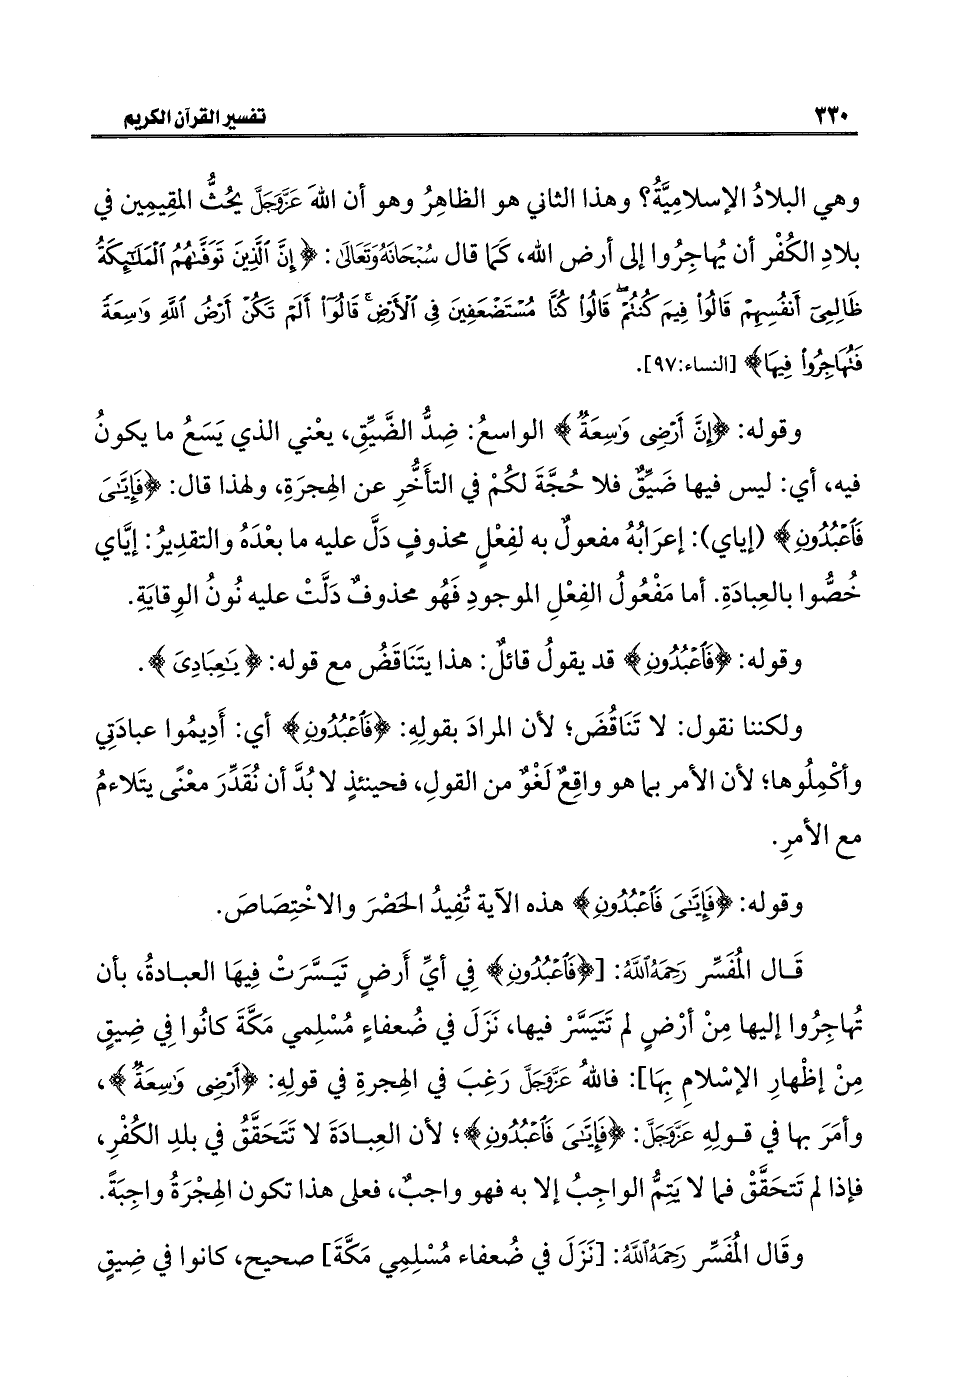 ٣٣٠
تفسير القرآن الكريم
وهي البلادُ الإسلاميَّةُ؟ وهذا الثاني هو الظاهِرُ وهو أن اللهَ عَزَّوَجَلَّ يحُثُّ المقِيمِين في
بلادِ الكُفْر أن يُهاجِرُوا إلى أرض الله، كَمَا قال سُبْحَانَهُ وَتَعَالَى: ﴿إِنَّ ٱلَّذِينَ تَوَفَّىٰهُمُ ٱلْمَلَـٰٓئِكَةُ
ظَالِمِىٓ أَنفُسِهِمْ قَالُوا۟ فِيمَ كُنتُمْ ۖ قَالُوا۟ كُنَّا مُسْتَضْعَفِينَ فِى ٱلْأَرْضِ ۚ قَالُوٓا۟ أَلَمْ تَكُنْ أَرْضُ ٱللَّهِ وَٰسِعَةً
فَتُهَاجِرُوا۟ فِيهَا﴾ [النساء:٩٧].
وقوله: ﴿إِنَّ أَرْضِى وَٰسِعَةٌ﴾ الواسعُ: ضِدُّ الضَّيِّقِ، يعْني الذي يَسَعُ ما يكونُ
فيه، أي: ليس فيها ضَيِّقٌ فلا حُجَّةَ لكُمْ في التأخُّرِ عن الهِجرَةِ، ولهذا قال: ﴿فَإِيَّـٰىَ
فَٱعْبُدُونِ﴾ (إياي): إعرَابُهُ مفعولٌ به لفِعْلٍ محذوفٍ دَلَّ عليه ما بعْدَهُ والتقدِيرُ: إيَّاي
خُصُّوا بالعِبادَةِ. أما مَفْعُولُ الفِعْلِ الموجودِ فَهُو محذوفٌ دَلَّتْ عليه نُونُ الوِقايَةِ.
وقوله: ﴿فَٱعْبُدُونِ﴾ قد يقولُ قائلٌ: هذا يتَنَاقَضُ مع قوله: ﴿يَـٰعِبَادِىَ﴾.
ولكننا نقول: لا تَنَاقُضَ؛ لأن المرادَ بقولِهِ: ﴿فَٱعْبُدُونِ﴾ أي: أَدِيمُوا عبادَتِي
وأكْمِلُوها؛ لأن الأمر بما هو واقِعٌ لَغْوٌ من القولِ، فحينئذٍ لا بُدَّ أن نُقَدِّرَ معْنًى يتَلاءمُ
مع الأمرِ.
وقوله: ﴿فَإِيَّـٰىَ فَٱعْبُدُونِ﴾ هذه الآية تُفِيدُ الحَصْرَ والاخْتِصَاصَ.
قَـال المُفَسِّر رَحِمَهُ ٱللَّهُ: [﴿فَٱعْبُدُونِ﴾ فِي أَيِّ أَرضٍ تَيَـسَّرَتْ فِيهَا العبادةُ، بأن
تُهاجِرُوا إليها مِنْ أرْضٍ لم تَتَيَسَّرْ فيها، نَزَلَ في ضُعفاءِ مُسْلِمي مَكَّةَ كانُوا فِي ضِيقٍ
مِنْ إظْهارِ الإسْلامِ بِهَا]: فاللهُ عَزَّوَجَلَّ رَغِبَ في الهِجرةِ في قولِهِ: ﴿أَرْضِى وَٰسِعَةٌ﴾،
وأمَرَ بها في قـولِهِ عَزَّوَجَلَّ: ﴿فَإِيَّـٰىَ فَٱعْبُدُونِ﴾؛ لأن العِبادَةَ لا تَتَحَقَّقُ في بلدِ الكُفْرِ،
فإذا لم تَتحَقَّقْ فما لا يَتِمُّ الواجِبُ إلا به فهو واجبٌ، فعلى هذا تكون الهِجْرَةُ واجِبَةً.
وقَال المُفَسِّر رَحِمَهُ ٱللَّهُ: [نَزَلَ في ضُعفاء مُسْلِمِي مَكَّةَ] صحيح، كانوا في ضِيقٍ